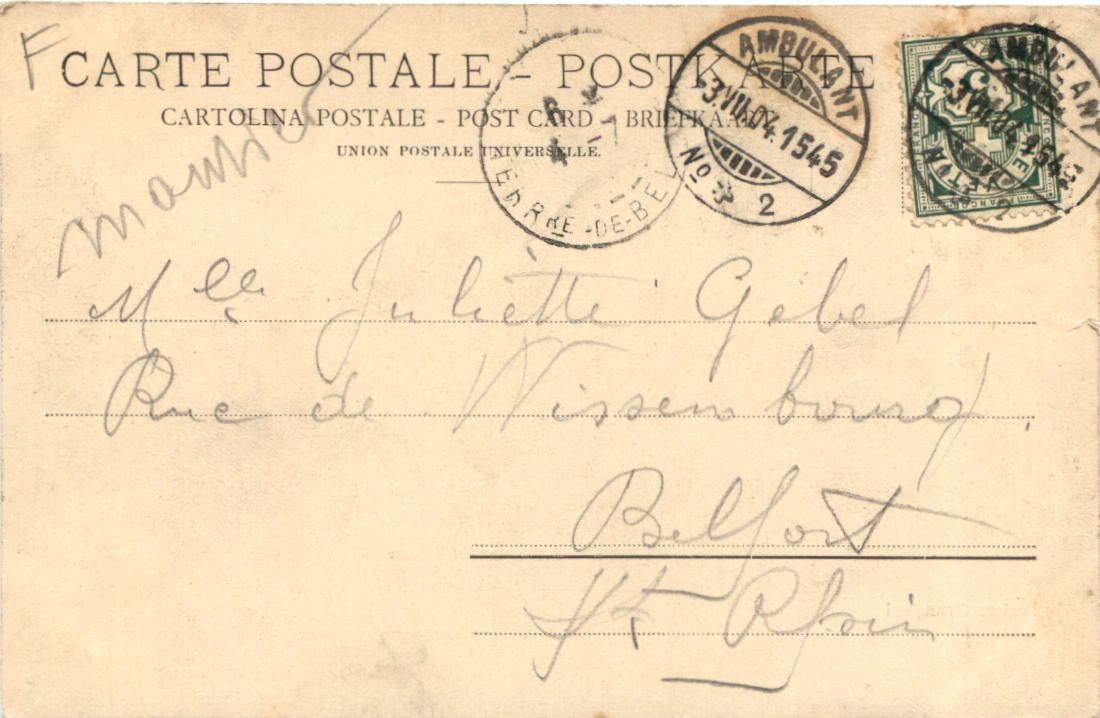 F
CARTE POSTALE - POSTKARTE
CARTOLINA POSTALE - POST CARD - BRIEFKAART
UNION POSTALE UNIVERSELLE.
AMBULANT
-3.VII.04.1545
No 2
AMBULANT
-3.VII.04.1545
No 2
DE-BEL
Mlle Juliette Gebel
Rue de Wissembourg
Belfort
Ht Rhin